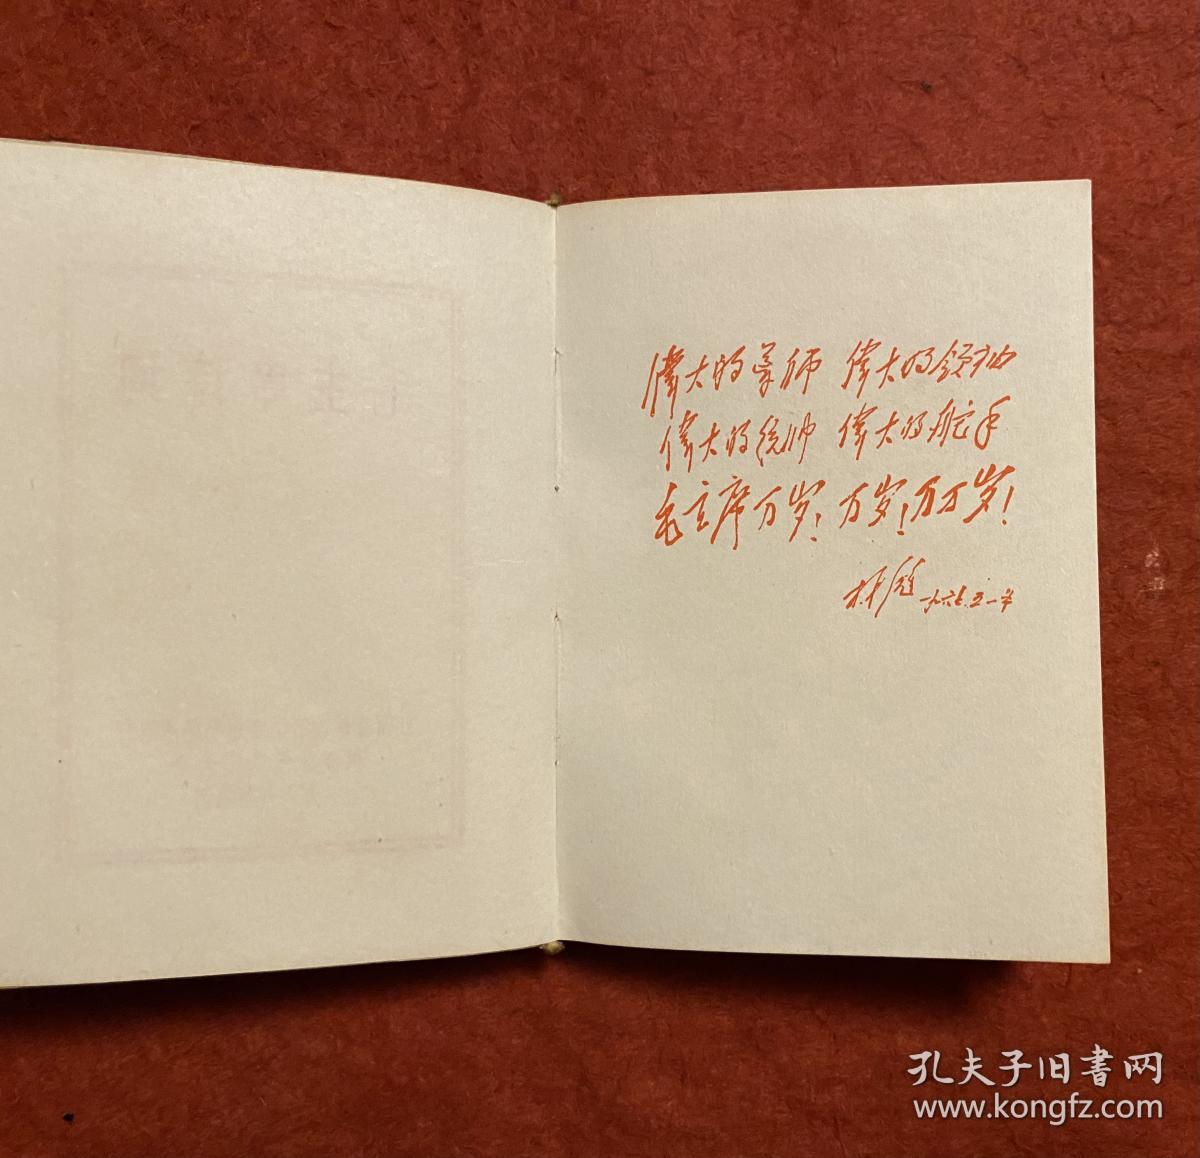 偉大的导师 偉大的领袖
偉大的统帅 偉大的舵手
毛主席万岁！万岁！万万岁！
林彪 一九六七.五.一日
孔夫子旧书网
www.kongfz.com